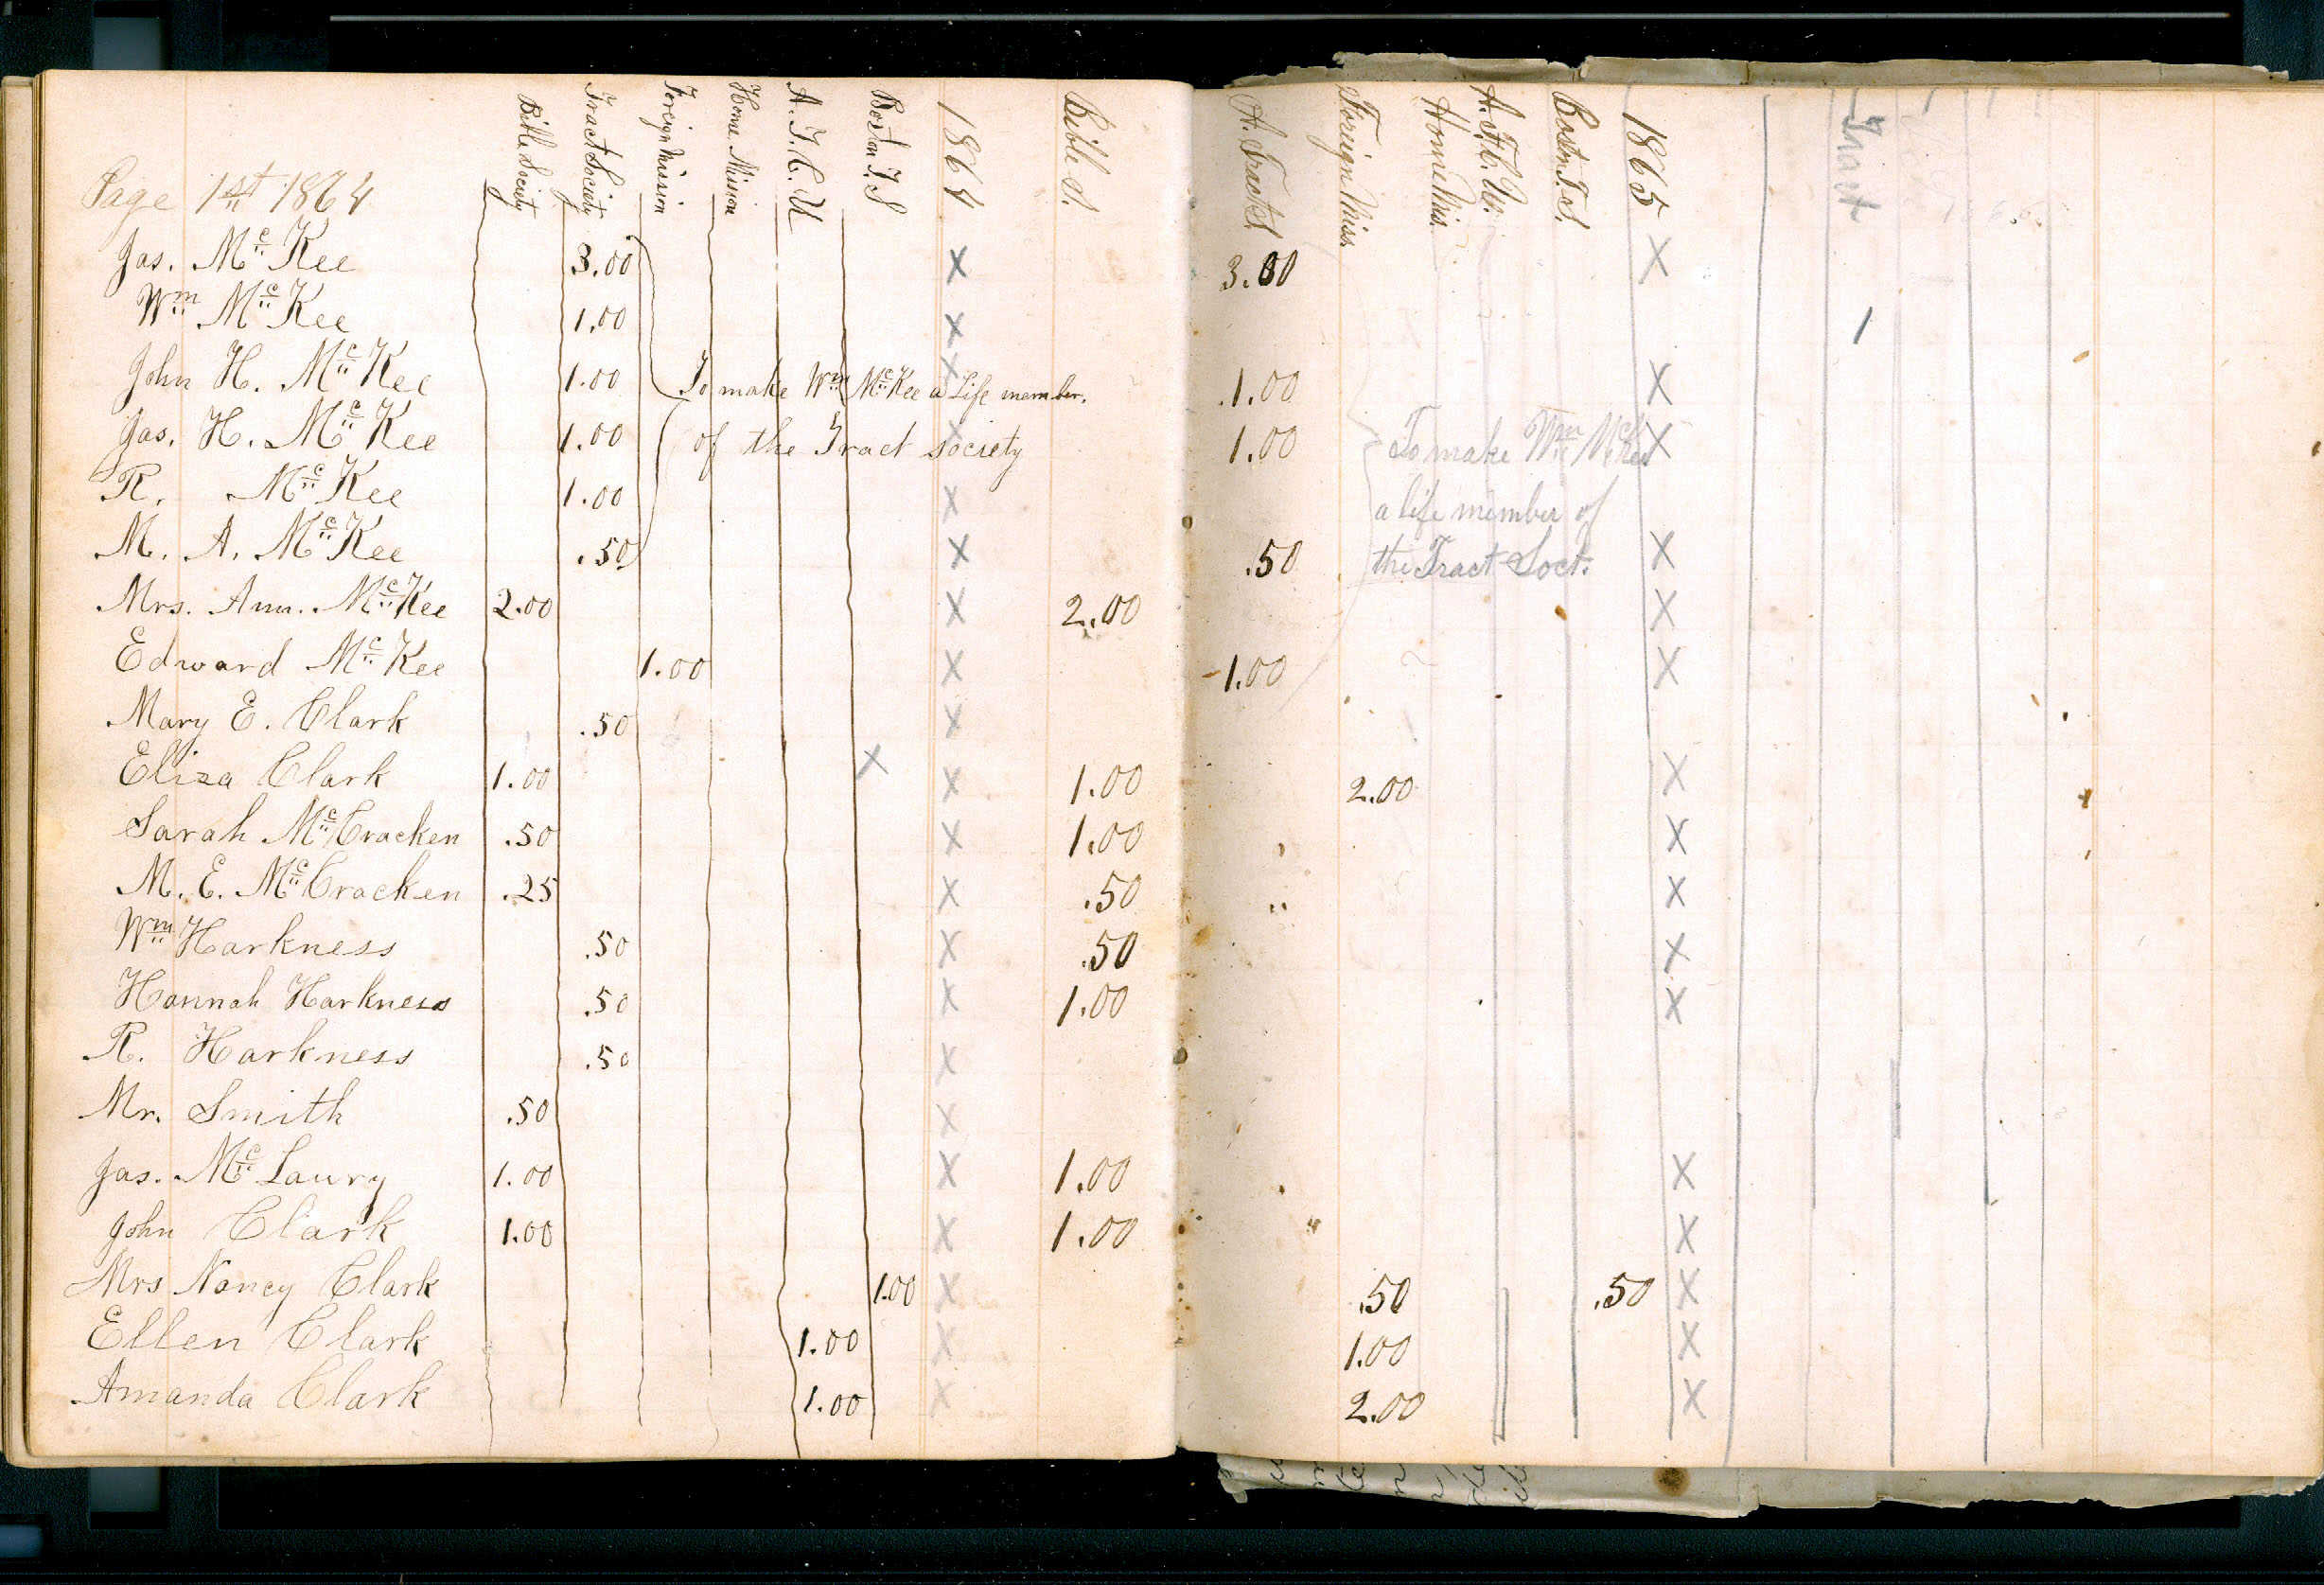 Bible Society Tract Society Foreign Mission Home Mission A. F. C. U Boston T. S 1864 Bible S. A. Tract S Foreign Miss. Home Mis. A. F. C. U. Boston T. S. 1865 Tract
Page 1st 1864
Jas. McKee 3.00 X 3.00 X
Wm McKee 1.00 X 1
John H. McKee 1.00 To make Wm McKee a Life member. X 1.00 X
Jas. H. McKee 1.00 of the Tract society X 1.00 To make Wm McKee X
R. McKee 1.00 X a life member of
M. A. McKee .50 X .50 the Tract Soct. X
Mrs. Ann. McKee 2.00 X 2.00 X
Edward McKee 1.00 X 1.00 X
Mary E. Clark .50 X
Eliza Clark 1.00 X X 1.00 2.00 X
Sarah McCracken .50 X 1.00 X
M. E. McCracken .25 X .50 X
Wm Harkness .50 X .50 X
Hannah Harkness .50 X 1.00 X
R. Harkness .50 X
Mr. Smith .50 X
Jas. McLaury 1.00 X 1.00 X
John Clark 1.00 X 1.00 X
Mrs Nancy Clark 1.00 X .50 .50 X
Ellen Clark 1.00 X 1.00 X
Amanda Clark 1.00 X 2.00 X